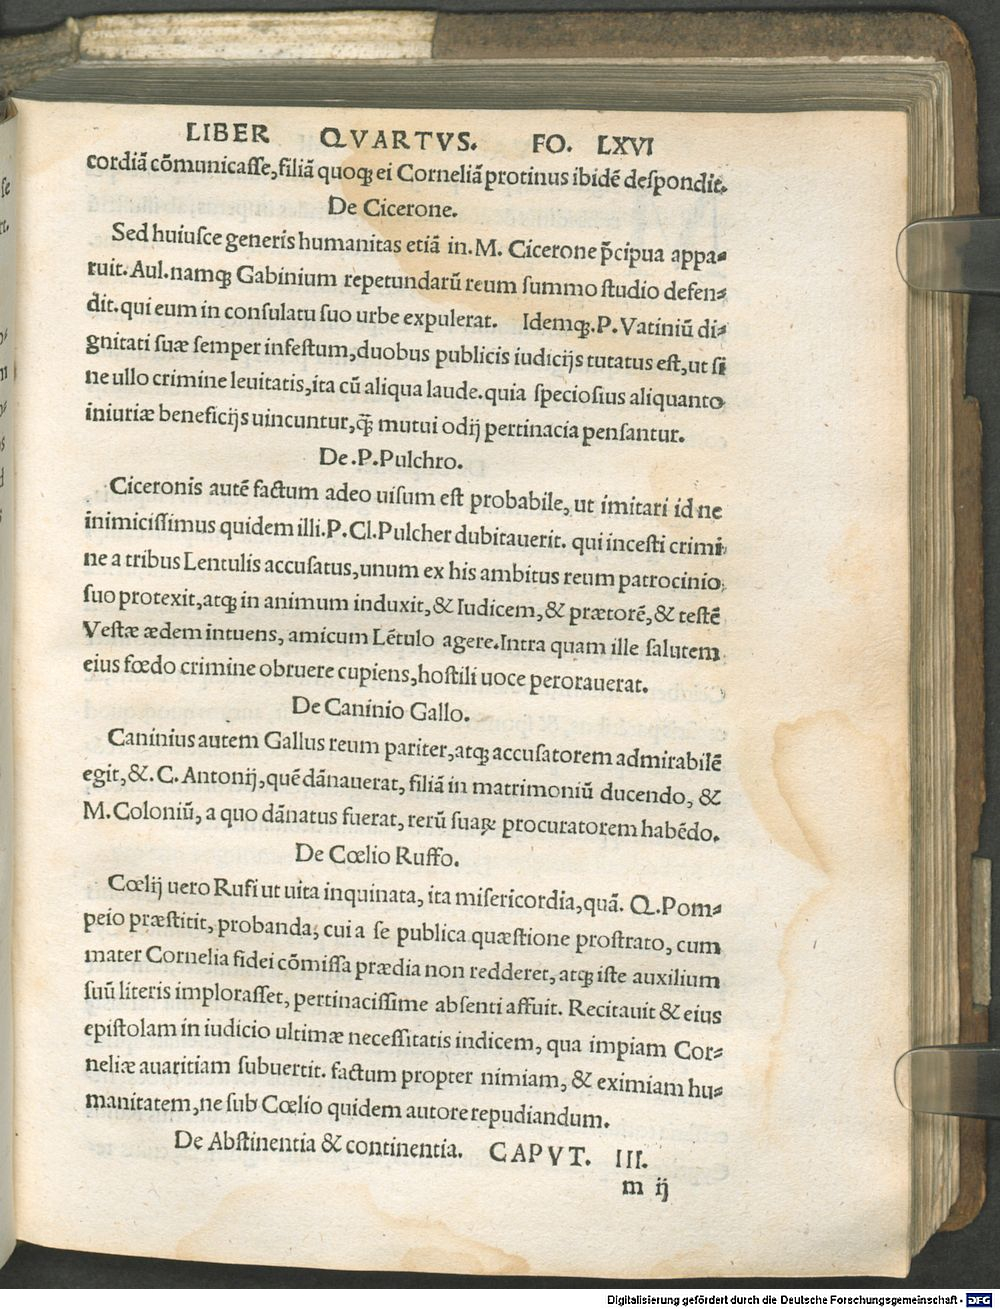 LIBER QVARTVS. FO. LXVI
cordiā cōmunicasse, filiā quoqꝫ ei Corneliā protinus ibidē despondit.
De Cicerone.
Sed huiusce generis humanitas etiā in. M. Cicerone p̄cipua appa-
ruit. Aul. namqꝫ Gabinium repetundarū reum summo studio defen-
dit. qui eum in consulatu suo urbe expulerat. Idemqꝫ. P. Vatiniū di-
gnitati suæ semper infestum, duobus publicis iudicijs tutatus est, ut si
ne ullo crimine leuitatis, ita cū aliqua laude. quia speciosius aliquanto
iniuriæ beneficijs uincuntur, q̄ꝫ mutui odij pertinacia pensantur.
De .P. Pulchro.
Ciceronis autē factum adeo uisum est probabile, ut imitari id ne
inimicissimus quidem illi. P. Cl. Pulcher dubitauerit. qui incesti crimi
ne a tribus Lentulis accusatus, unum ex his ambitus reum patrocinio
suo protexit, atqꝫ in animum induxit, & Iudicem, & prætorē, & testē
Vestæ ædem intuens, amicum Lētulo agere. Intra quam ille salutem
eius fœdo crimine obruere cupiens, hostili uoce perorauerat.
De Caninio Gallo.
Caninius autem Gallus reum pariter, atqꝫ accusatorem admirabilē
egit, &. C. Antonij, quē dānauerat, filiā in matrimoniū ducendo, &
M. Coloniū, a quo dānatus fuerat, rerū suaꝝ procuratorem habēdo.
De Cœlio Ruffo.
Cœlij uero Rufi ut uita inquinata, ita misericordia, quā. Q. Pom-
peio præstitit, probanda, cui a se publica quæstione prostrato, cum
mater Cornelia fidei cōmissa prædia non redderet, atqꝫ iste auxilium
suū literis implorasset, pertinacissime absenti affuit. Recitauit & eius
epistolam in iudicio ultimæ necessitatis indicem, qua impiam Cor-
neliæ auaritiam subuertit. factum propter nimiam, & eximiam hu-
manitatem, ne sub Cœlio quidem autore repudiandum.
De Abstinentia & continentia. CAPVT. III.
m ij
Digitalisierung gefördert durch die Deutsche Forschungsgemeinschaft - DFG